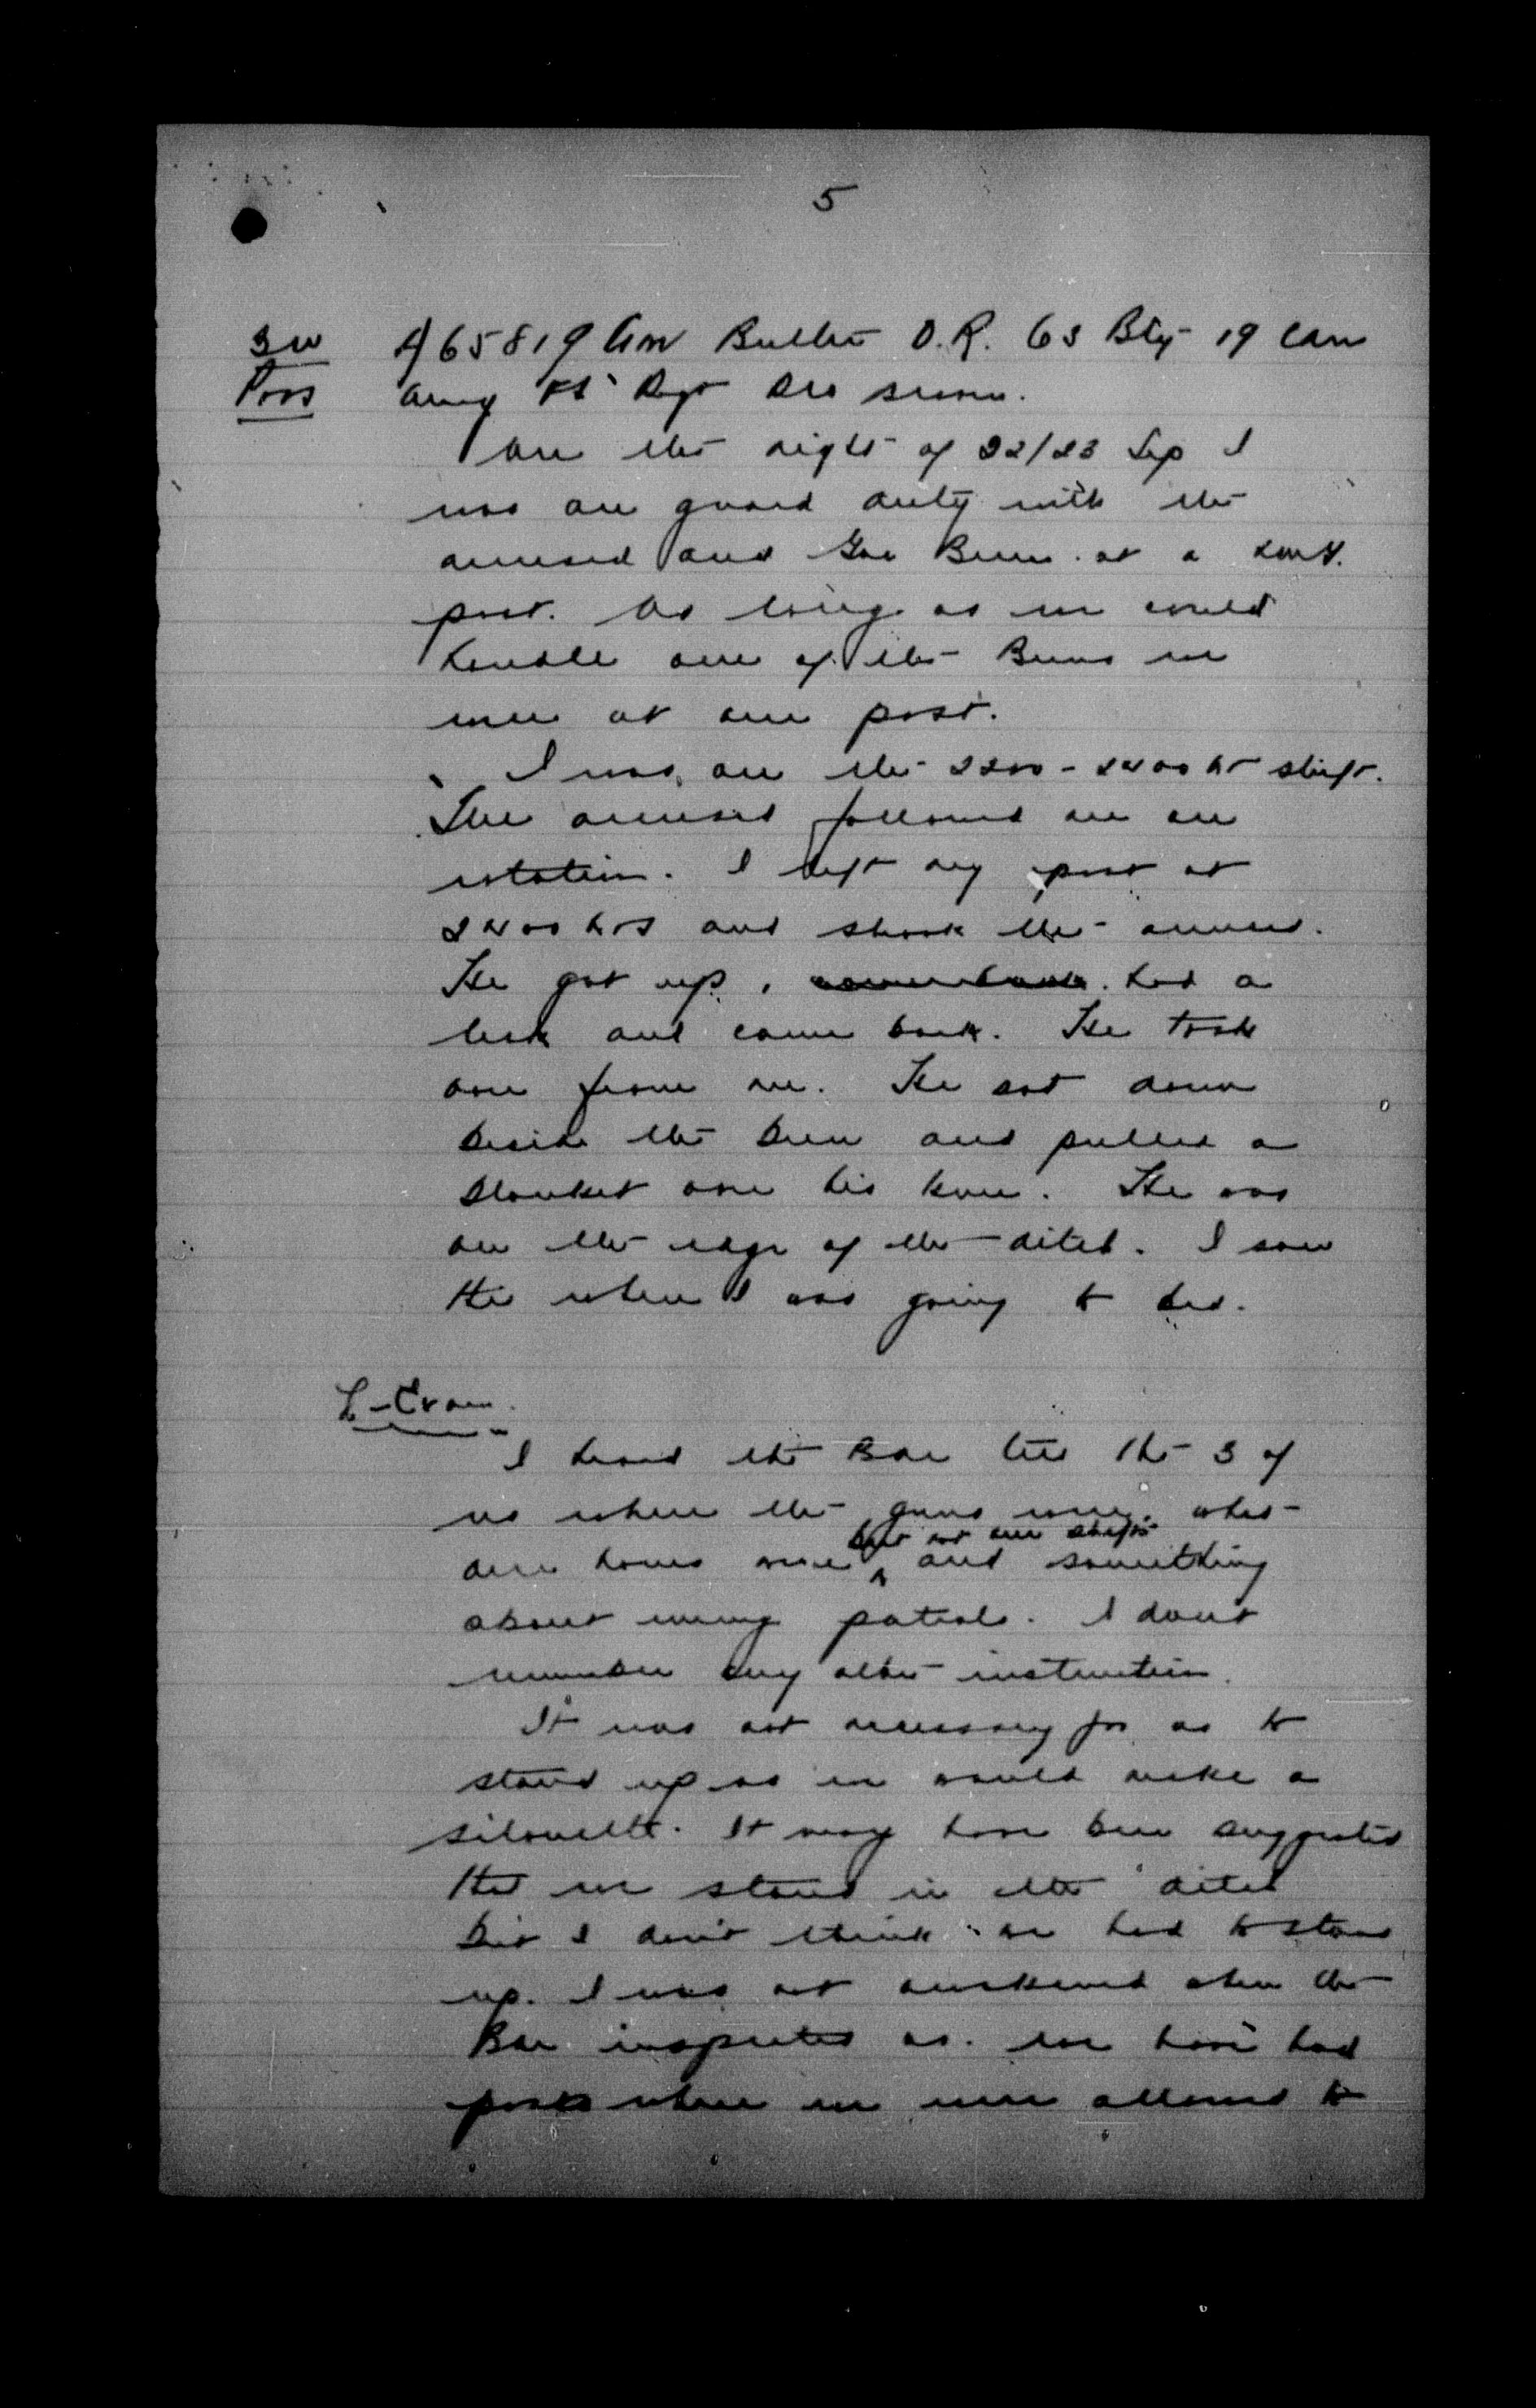 5
3 W A/65819 Gnr Butler D.R. 63 Bty 19 Can
Pros Army Fd Regt Sworn.
On the night of 22/23 Sep I
was on guard duty with the
accused and Gnr at a
post. As long as we could
handle one of the Brens we
were at one post.
I was on the 2200 - 2400 hr shift.
The accused followed me on
rotation. I left my post at
2400 hrs and shook the accused.
He got up, had a
leak and came back. He took
over from me. He sat down
beside the bren and pulled a
blanket over his knee. He was
on the edge of the ditch. I saw
this when I was going to bed.
X-Exam.
I heard the Bdr tell the 3 of
us where the guns were, what
our hours were but not our shifts and something
about enemy patrols. I don't
remember any other instruction.
It was not necessary for us to
stand up as we would make a
silouette. It may have been suggested
that we stand in the ditch
but I don't think we had to stand
up. I was not awakened when the
Bdr inspected us. We have had
posts where we were allowed to